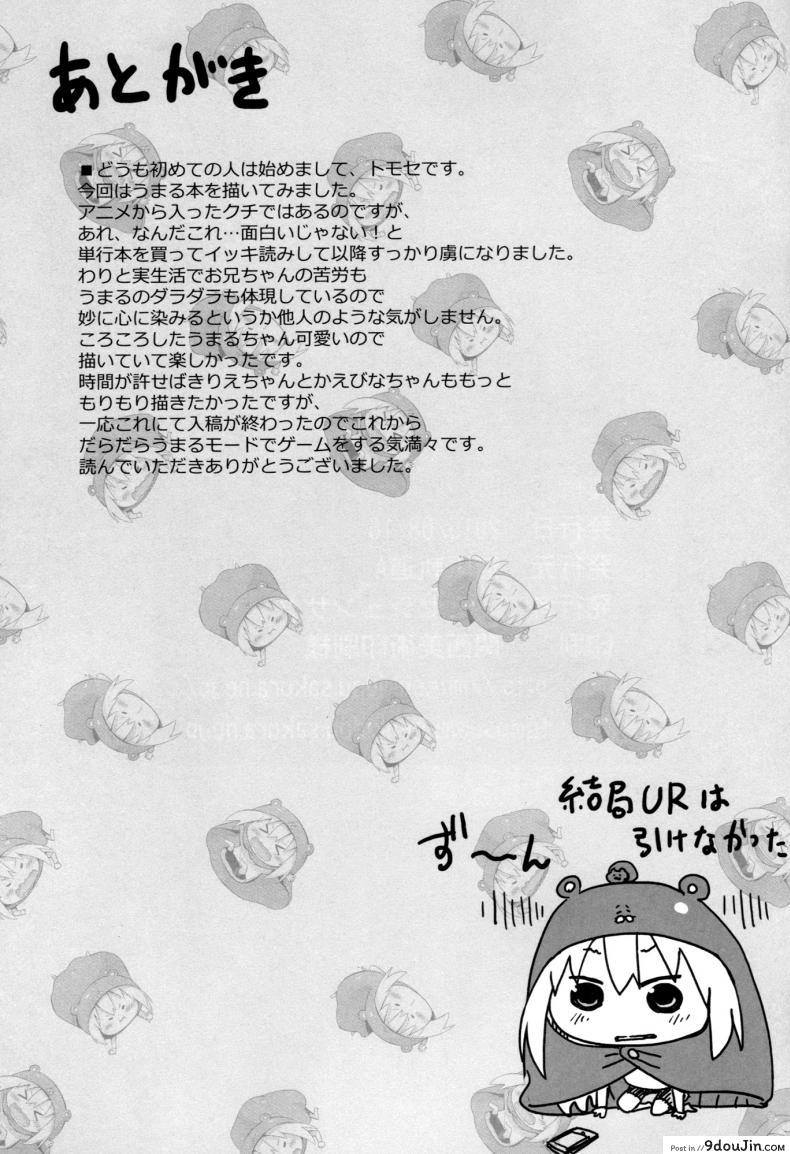 あとがき
■どうも初めての人は始めまして、トモセです。
今回はうまる本を描いてみました。
アニメから入ったクチではあるのですが、
あれ、なんだこれ…面白いじゃない！と
単行本を買ってイッキ読みして以降すっかり虜になりました。
わりと実生活でお兄ちゃんの苦労も
うまるのダラダラも体現しているので
妙に心に染みるというか他人のような気がしません。
ころころしたうまるちゃん可愛いので
描いていて楽しかったです。
時間が許せばきりえちゃんとかえびなちゃんももっと
もりもり描きたかったですが、
一応これにて入稿が終わったのでこれから
だらだらうまるモードでゲームをする気満々です。
読んでいただきありがとうございました。
結局URは
引けなかった
ず〜ん
Post in // 9douJin.com